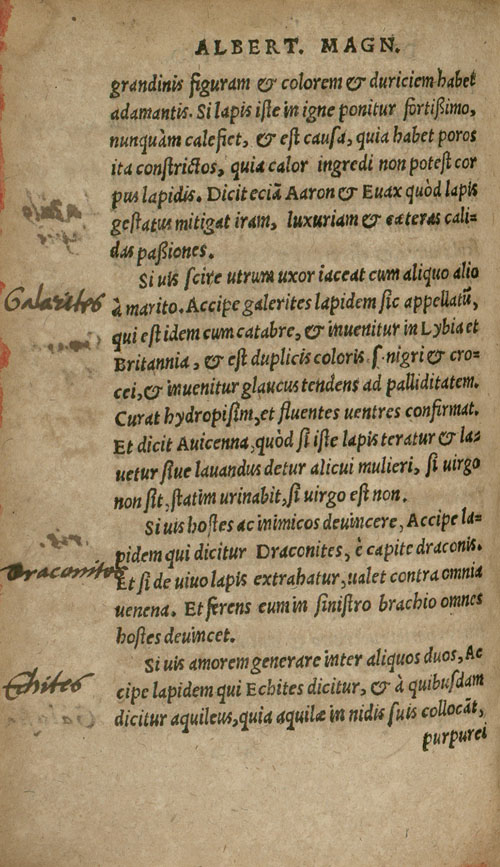 ALBERT. MAGN.
grandinis figuram & colorem & duriciem habet
adamantis. Si lapis iste in igne ponitur fortißimo,
nunquàm calefiet, & est causa, quia habet poros
ita constrictos, quia calor ingredi non potest cor
pus lapidis. Dicit eciã Aaron & Euax quòd lapis
gestatus mitigat iram, luxuriam & cæteras cali-
das paßiones.
Si uis scire utrum uxor iaceat cum aliquo alio
Galarites
à marito. Accipe galerites lapidem sic appellatũ,
qui est idem cum catabre, & inuenitur in Lybia et
Britannia, & est duplicis coloris .s. nigri & cro-
cei, & inuenitur glaucus tendens ad palliditatem.
Curat hydropisim, et fluentes uentres confirmat.
Et dicit Auicenna, quòd si iste lapis teratur & la-
uetur siue lauandus detur alicui mulieri, si uirgo
non sit, statim urinabit, si uirgo est non.
Si uis hostes ac inimicos deuincere, Accipe la-
Draconites
pidem qui dicitur Draconites, è capite draconis.
Et si de uiuo lapis extrahatur, ualet contra omnia
uenena. Et ferens eum in sinistro brachio omnes
hostes deuincet.
Si uis amorem generare inter aliquos duos, Ac
Ehites
cipe lapidem qui Echites dicitur, & à quibusdam
dicitur aquileus, quia aquilæ in nidis suis collocãt,
purpurei